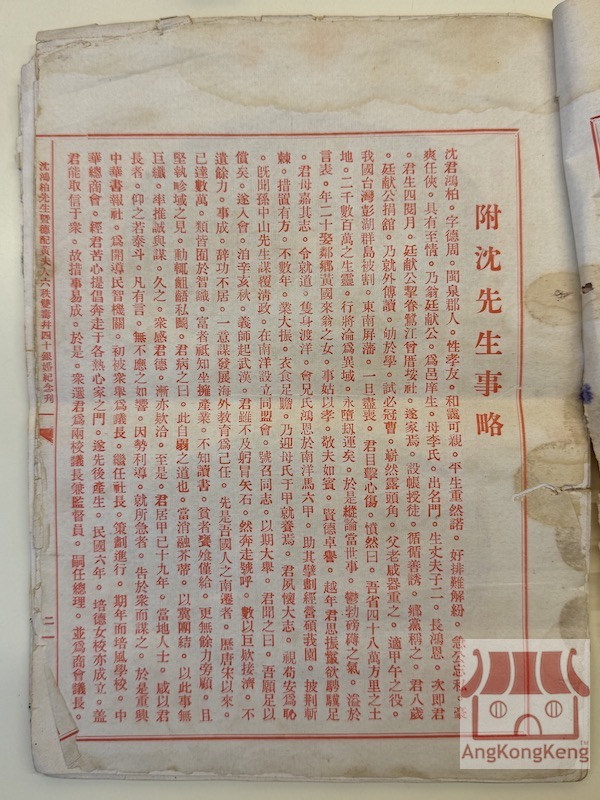 附沈先生事略
沈君鴻柏。字德周。閩泉郡人。性孝友。和藹可親。平生重然諾。好排難解紛。急公忘私。豪
爽任俠。具有至情。乃翁廷獻公。爲邑庠生。母李氏。出名門。生丈夫子二。長鴻恩。次即君
君生四閱月。廷獻公挈眷鷺江曾厝垵社。遂家焉。設帳授徒。循循善誘。鄉黨稱之。君八歲
廷獻公捐舘。乃就外傅讀。劬於學。試必冠曹。嶄然露頭角。父老咸器重之。適甲午之役。
我國台灣彭湖群島被割。東南屏藩。一旦盡喪。君目擊心傷。憤然曰。吾省四十八萬方里之土
地。二千數百萬之生靈。行將淪爲異域。永墮刼運矣。於是縱論當世事。鬱勃磅礴之氣。溢於
言表。年二十娶鄰鄉黃國來翁之女。事姑以孝。敬夫如賓。賢德卓譽。越年君思振鬣欲騁驥足
。君母嘉其志。令就道。隻身渡洋。會兄氏鴻恩於南洋馬六甲。助其擘劃經營碩莪園。披荆斬
棘。措置有方。不數年。業大振。衣食足贍。乃迎母氏于甲就養焉。君夙懷大志。視苟安爲恥
。旣聞孫中山先生謀覆淸政。在南洋設立同盟會。號召同志。以期大舉。君聞之曰。吾願足以
償矣。遂入會。洎辛亥秋。義師起武漢。君雖不及躬冒矢石。然奔走號呼。數以巨欵接濟。不
遺餘力。事成。辭功不居。一意謀發展海外教育爲己任。先是吾國人之南遷者。歷唐宋以來。
已達數萬。類皆固於智識。富者祇知坐擁產業。不知讀書。貧者饔飧僅給。更無餘力旁顧。且
堅執畛域之見。動輒齟齬私鬬。君病之曰。此自剶之道也。當消融芥蒂。以冀團結。以此事無
巨纖。率推誠與謀。久之。衆感君德。漸亦欵洽。至是。君居甲已十九年。當地人士。咸以君
長者。仰之若泰斗。凡有言。無不應之如響。因勢利導。就所急者。告於衆而謀之。於是重興
中華書報社。爲開導民智機關。初被衆舉爲議長。繼任社長。策劃進行。期年而培風學校。中
華總商會。經君苦心提倡奔走于各熱心家之門。遂先後產生。民國六年。培德女校亦成立。蓋
君能取信于衆。故措事易成。於是。衆選君爲兩校議長兼監督員。嗣任總理。並爲商會議長。
沈鴻柏先生暨德配黃夫人六秩雙壽并四十銀婚紀念刊
二一
AngKongKeng
TM